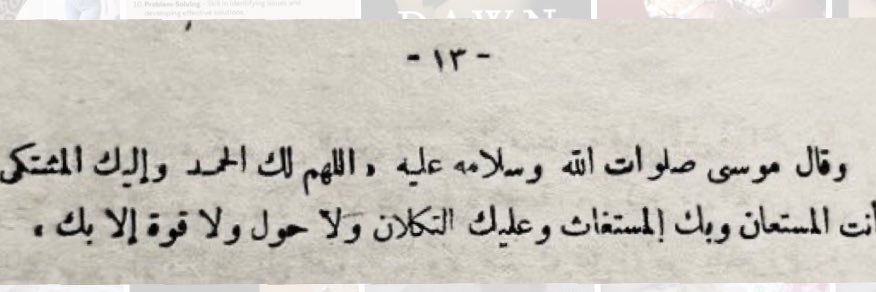 10. Problem-Solving – Skill in identifying issues and
developing effective solutions.
DAWN
- ١٣ -
وقال موسى صلوات الله وسلامه عليه « اللهم لك الحمد وإليك المشتكى
أنت المستعان وبك المستغاث وعليك التكلان ولا حول ولا قوة إلا بك »